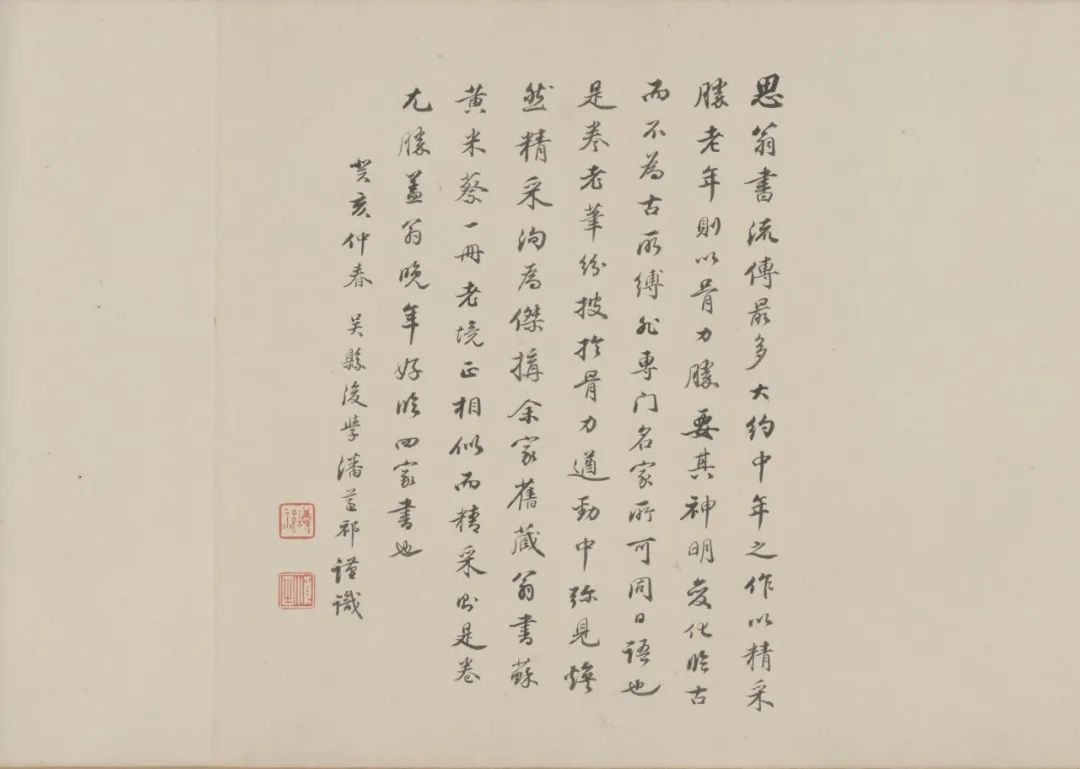 思翁書流傳最多大約中年之作以精采
勝老年則以骨力勝要其神明變化臨古
而不為古所縛非專门名家所可同日語也
是卷老筆紛披於骨力遒勁中彌見煥
然精采洵為傑搆余家舊藏翁書蘇
黃米蔡一冊老境正相似而精采則是卷
尤勝蓋翁晚年好臨四家書也
癸亥仲春 吴縣後學潘祁謹識